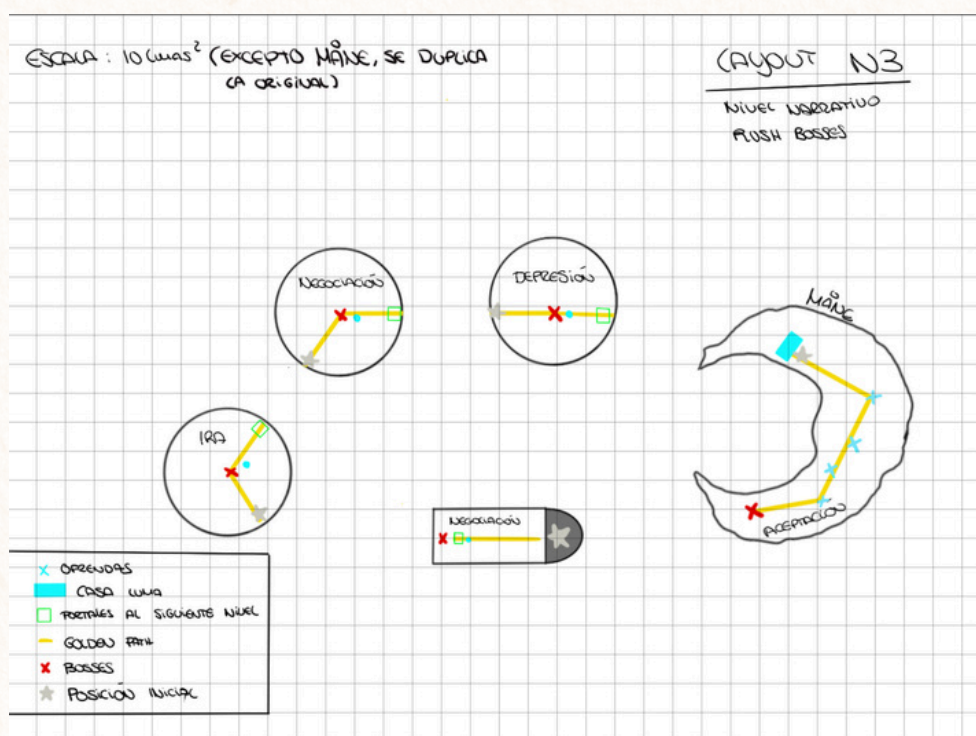 ESCALA: 10 Lunas² (EXCEPTO MÅNE, SE DUPLICA
LA ORIGINAL)
LAYOUT N3
NIVEL NARRATIVO
RUSH BOSSES
NEGOCIACIÓN
DEPRESIÓN
MÅNE
IRA
NEGOCIACIÓN
ACEPTACIÓN
OFRENDAS
CASA LUNA
PORTALES AL SIGUIENTE NIVEL
GOLDEN PATH
BOSSES
POSICIÓN INICIAL